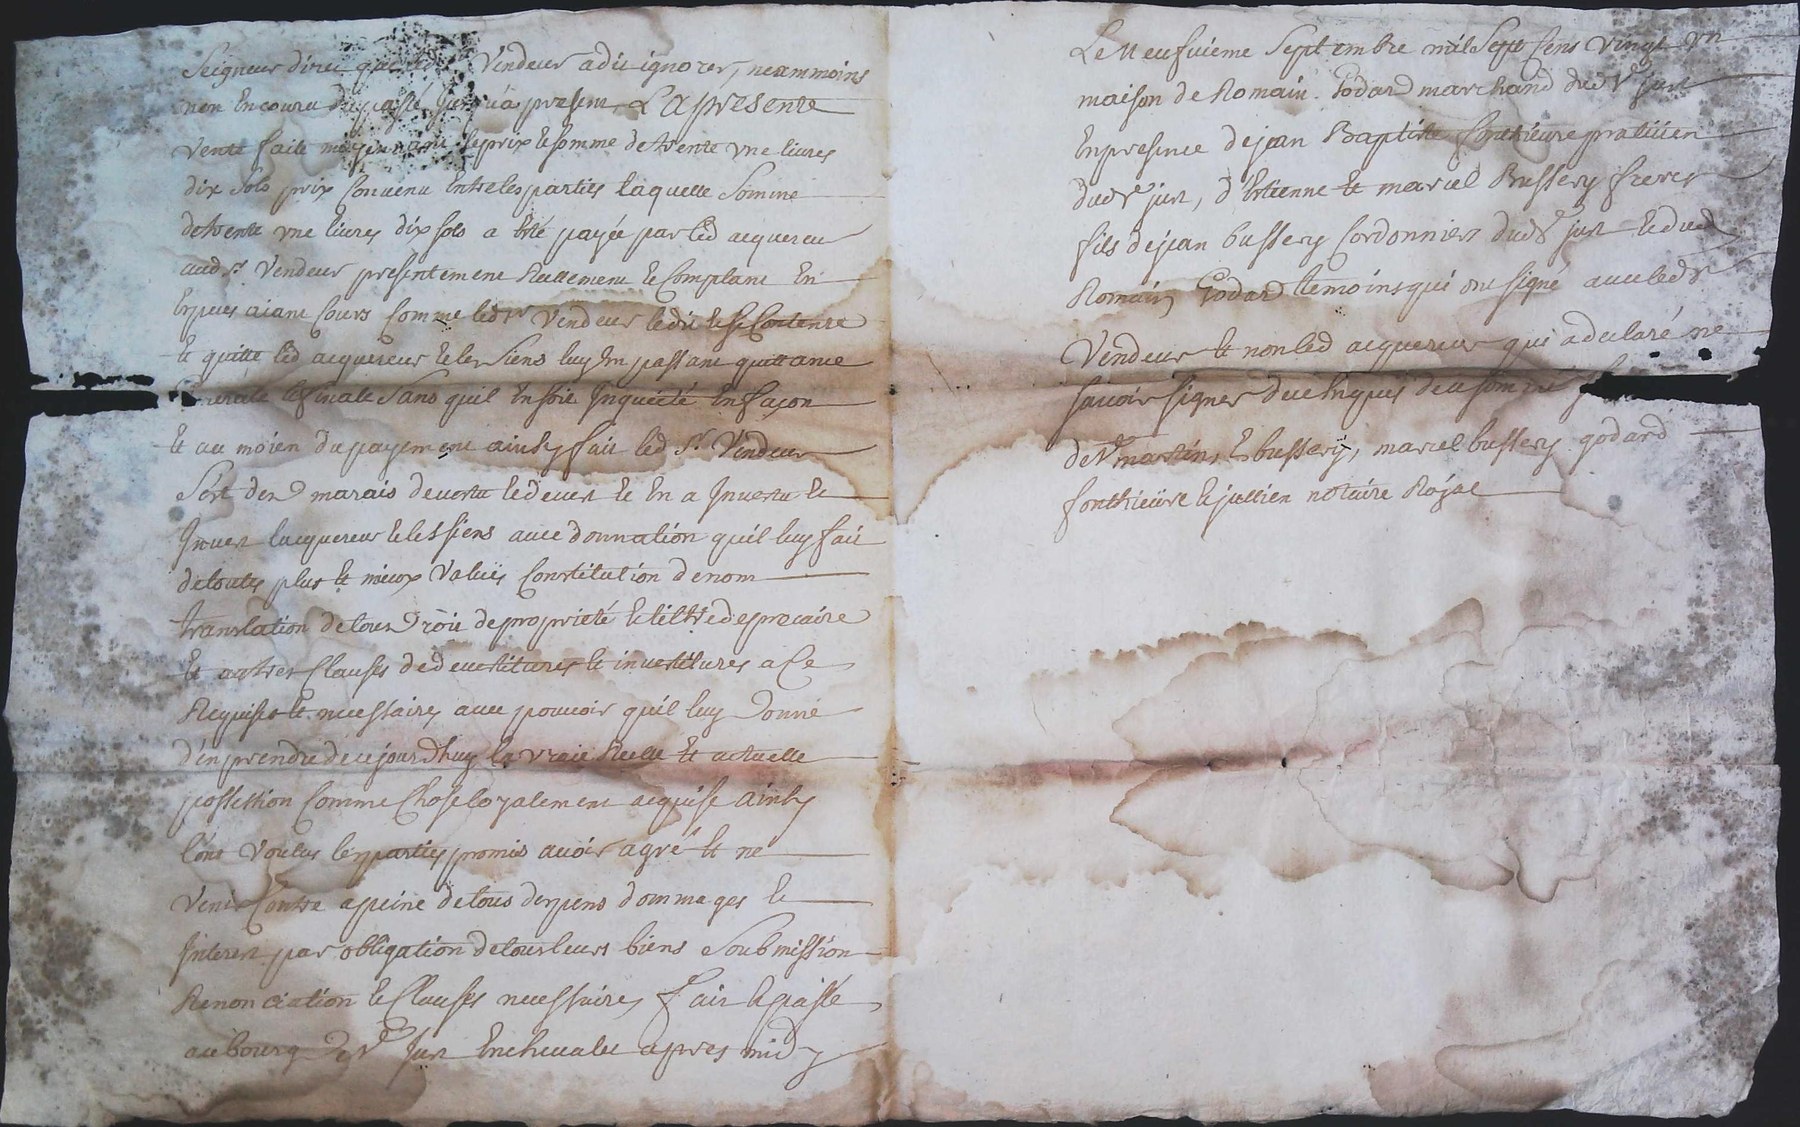 Seigneur direct que le Vendeur a dit ignorer, neammoins
non Encouru du passé jusqu'a present. La presente
vente faite moyennant le prix et somme de trente une livres
dix sols prix Convenu Entre les parties laquelle Somme
de trente vne livres dix sols a Eté payée par led acquereur
aud sr. Vendeur presentement Reellement et Comptant En
Especes aiant Cours Comme led sr Vendeur le dit et se Contente
Et quitte led acquereur et les Siens luy En passant quittance
generale et finale Sans quil En soit Inquieté En façon
Et au moien du payement ainsy fait led sr. Vendeur
S'est dud marais devestu et devest Et En a Invertu et
Invest lacquereur et les siens avec donnation quil luy fait
de toutes plus et mieux Values Constitution de nom
translation de tous droit de proprieté et tiltre de precaire
Et autres Clauses de devestitures et investitures a Ce
Requises et necessaires avec pouvoir quil luy donne
d'en prendre de ce jourdhuy la vraie Reelle Et actuelle
possession Comme Chose loyalement acquise ainsy
l'ont Voulus les parties promis avoir agré Et ne
Venir Contre a peine de tous depens dommages et
Interest par obligation de tous leurs biens Soubmission
Renonciation et Clauses necessaires, fait et passé
au bourg de St Just En chevalet apres midy
Le Neufvieme Septembre mil Sept Cens vingt vn
maison de Romain Godard marchand dud St just
En presence de jean Baptiste fonthieure pratitien
dud St just, d'Etienne et marcel Bussery freres
fils de jean bussery Cordonnier dud St just et dud
Romain Godard temoins qui ont signé avec led sr
Vendeur et non led acquereur qui a declaré ne
savoir signer de ce Enquis de ce sommé
de St martin, E bussery, marcel bussery godard
fonthieure et jullien notaire Royal